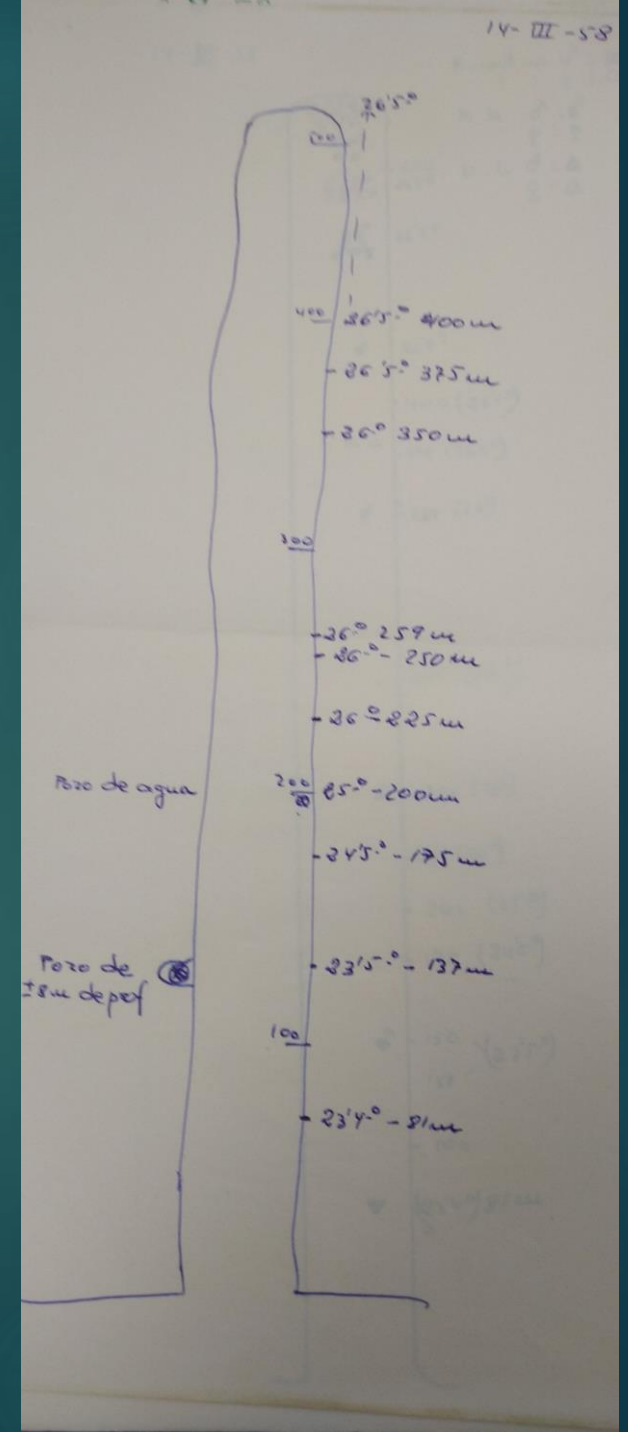 14-III-58
26'5º
500
400 26'5º 400m
26'5º 375m
26º 350m
300
26º 259m
26º - 250m
26º - 225m
Pozo de agua
200 25º - 200m
24'5º - 175m
Pozo de
±8m de prof
23'5º - 137m
100
23'4º - 81m